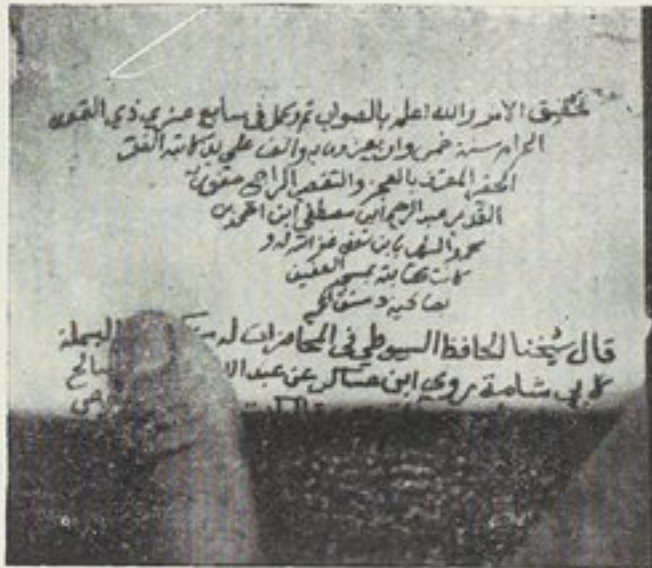 تحقيق الامر والله اعلم بالصواب تم وكمل في سابع عشري ذي القعدة
الحرام سنة خمس واربعين وماية والف على يد كاتبه الفقير
الحقير المعترف بالعجز والتقصير الراجي عفو ربه
القدير عبد الرحيم ابن مصطفى ابن احمد بن
محمد الشهير بابن غفر الله له و
كانت كتابته بمسجد العفيف
بصالحية دمشق
قال شيخنا الحافظ السيوطي في المحاضرات له البسملة
لابي شامة روى ابن عساكر عن عبد